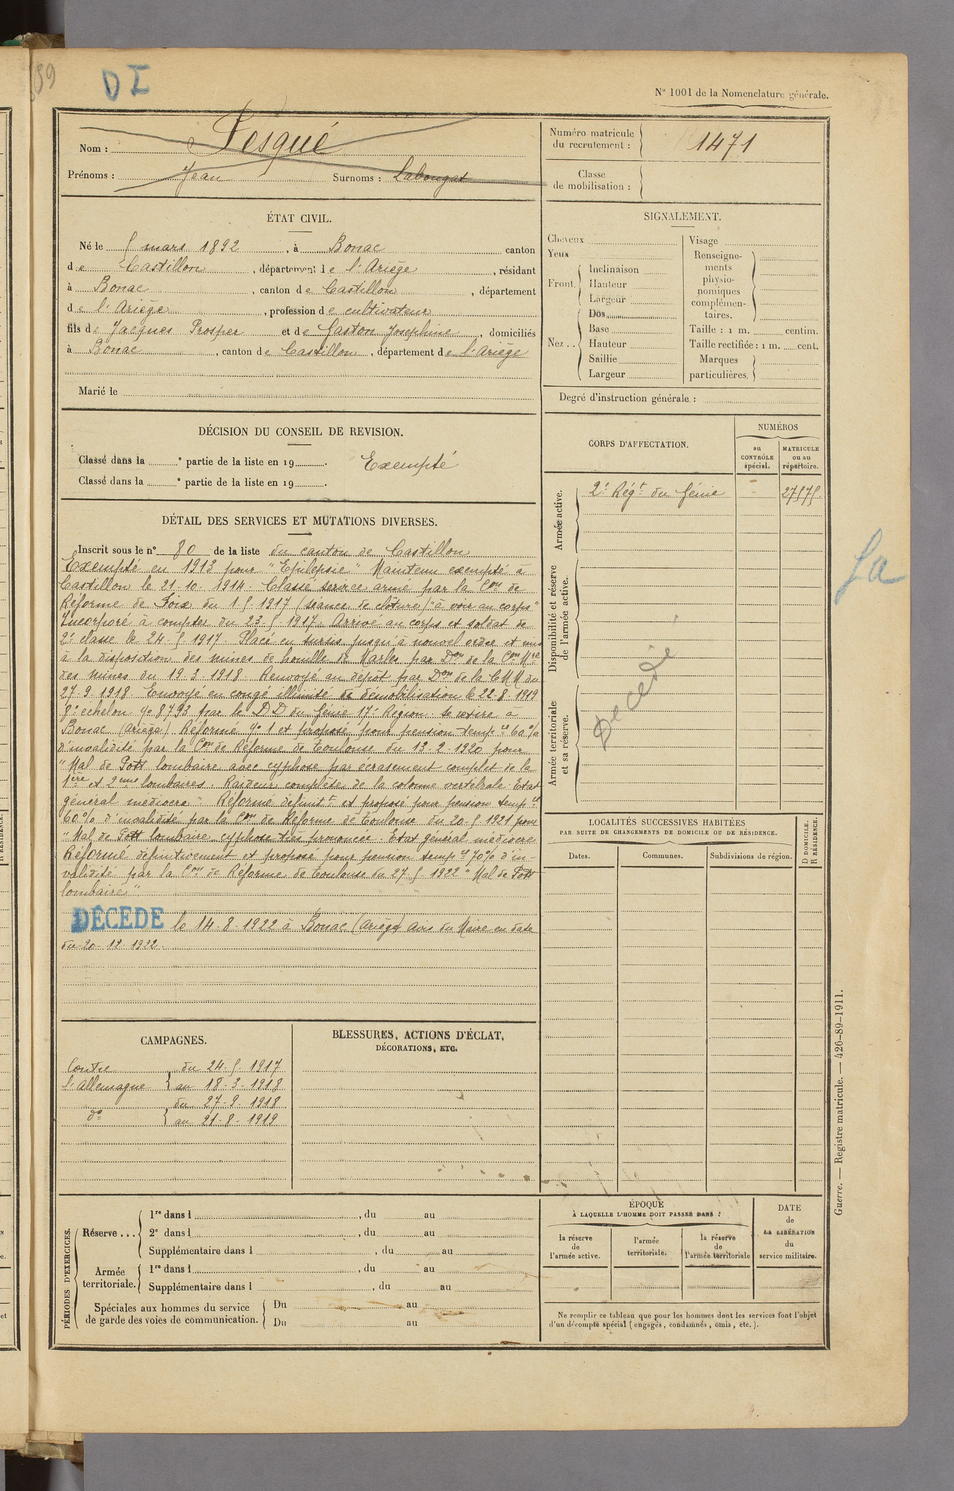 59
D I
N° 1001 de la Nomenclature générale.
Nom : Pesqué
Prénoms : Jean Surnoms : Labougat
Numéro matricule du recrutement : 1471
Classe de mobilisation :
ÉTAT CIVIL.
Né le 5 mars 1892, à Bonac canton
de Castillon, département de l'Ariège, résidant
à Bonac, canton de Castillon, département
de l'Ariège, profession de cultivateur
fils de Jacques Prosper et de Gaston Josephine, domiciliés
à Bonac, canton de Castillon, département de l'Ariège
Marié le
SIGNALEMENT.
Cheveux
Yeux
Front. Inclinaison
Hauteur
Largeur
Nez .. Dos
Base
Hauteur
Saillie
Largeur
Visage
Renseignements physionomiques complémentaires.
Taille : 1 m. centim.
Taille rectifiée : 1 m. cent.
Marques particulières.
Degré d'instruction générale :
DÉCISION DU CONSEIL DE REVISION.
Classé dans la ° partie de la liste en 19 . Exempté
Classé dans la ° partie de la liste en 19 .
CORPS D'AFFECTATION.
NUMÉROS
au CONTRÔLE spécial.
MATRICULE ou au répertoire.
Armée active.
2e Régt du Génie 27575
Disponibilité et réserve de l'armée active.
Armée territoriale et sa réserve.
Décédé
La
DÉTAIL DES SERVICES ET MUTATIONS DIVERSES.
Inscrit sous le n° 80 de la liste du canton de Castillon
Exempté en 1913 pour "Epilepsie" Maintenu exempté à
Castillon le 21.10.1914. Classé service armé par la Com de
Réforme de Foix du 1.5.1917 (séance de clôture) "à voir au corps"
Incorporé à compter du 23.5.1917. Arrivé au corps et soldat de
2e classe le 24.5.1917. Placé en sursis jusqu'à nouvel ordre et mis
à la disposition des mines de houille de Marles par Don de la Com Mre
des mines du 19.3.1918. Renvoyé au dépôt par Don de la CMM du
27.9.1918. Envoyé en congé illimité de démobilisation le 22.8.1919
8e échelon No 8793 par le DD du Génie 17e Région se retire à
Bonac (Ariège) Réformé No 1 et proposé pour pension tempre 60%
d'invalidité par la Com de Réforme de Toulouse du 13.2.1920 pour
"Mal de Pott lombaire avec cyphose par écrasement complet de la
1ère et 2ème lombaires. Raideur complète de la colonne vertébrale. Etat
général médiocre" Réformé définitt et proposé pour pension tempre
60% d'invalidité par la Com de Réforme de Toulouse du 20.5.1921 pour
"Mal de Pott lombaire cyphose très prononcée. Etat général médiocre
Réformé définitivement et proposé pour pension tempre 70% d'in-
validité par la Com de Réforme de Toulouse du 27.5.1922 "Mal de Pott
lombaire"
DÉCÉDÉ le 14.8.1922 à Bonac (Ariège) avis du Maire en date
du 20.12.1922.
LOCALITÉS SUCCESSIVES HABITÉES
PAR SUITE DE CHANGEMENTS DE DOMICILE OU DE RÉSIDENCE.
D DOMICILE. R RÉSIDENCE.
Dates. Communes. Subdivisions de région.
CAMPAGNES.
Contre du 24.5.1917
l'Allemagne au 18.3.1918
do du 27.9.1918
au 21.8.1919
BLESSURES, ACTIONS D'ÉCLAT,
DÉCORATIONS, ETC.
PÉRIODES D'EXERCICES.
Réserve ... 1re dans l , du au
2e dans l , du au
Supplémentaire dans l , du au
Armée territoriale. 1re dans l , du au
Supplémentaire dans l , du au
Spéciales aux hommes du service de garde des voies de communication. Du au
Du au
ÉPOQUE
À LAQUELLE L'HOMME DOIT PASSER DANS :
la réserve de l'armée active.
l'armée territoriale.
la réserve de l'armée territoriale
DATE de LA LIBÉRATION du service militaire.
Ne remplir ce tableau que pour les hommes dont les services font l'objet
d'un décompte spécial (engagés, condamnés, omis, etc.).
Guerre. — Registre matricule. — 426-89-1911.